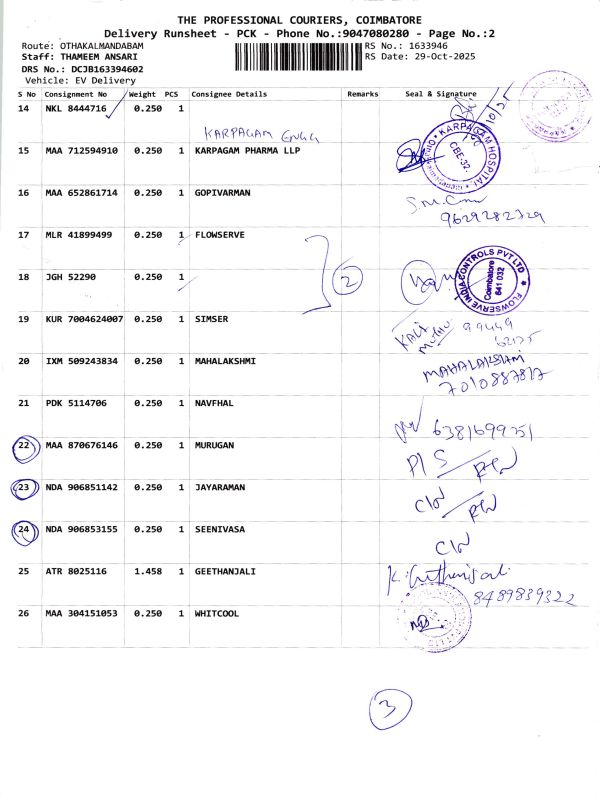 THE PROFESSIONAL COURIERS, COIMBATORE
Delivery Runsheet - PCK - Phone No.:9047080280 - Page No.:2
Route: OTHAKALMANDABAM RS No.: 1633946
Staff: THAMEEM ANSARI RS Date: 29-Oct-2025
DRS No.: DCJB163394602
Vehicle: EV Delivery
S No Consignment No Weight PCS Consignee Details Remarks Seal & Signature
14 NKL 8444716 0.250 1
KARPAGAM ENGG
15 MAA 712594910 0.250 1 KARPAGAM PHARMA LLP
KARPAGAM HOSPITAL
CBE-32.
16 MAA 652861714 0.250 1 GOPIVARMAN
9629282729
17 MLR 41899499 0.250 1 FLOWSERVE
18 JGH 52290 0.250 1
2
FLOWSERVE INDIA CONTROLS PVT LTD
Coimbatore
641 032
19 KUR 7004624007 0.250 1 SIMSER
KALI
MUTHU
99449
20 IXM 509243834 0.250 1 MAHALAKSHMI
MAHALAKSHMI
7010887817
21 PDK 5114706 0.250 1 NAVFHAL
6381699751
22 MAA 870676146 0.250 1 MURUGAN
23 NDA 906851142 0.250 1 JAYARAMAN
24 NDA 906853155 0.250 1 SEENIVASA
25 ATR 8025116 1.458 1 GEETHANJALI
8489839322
26 MAA 304151053 0.250 1 WHITCOOL
3